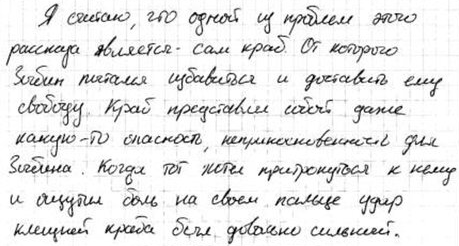 Я считаю, что одной из проблем этого
рассказа является - сам краб. От которого
Зыбин пытался избавиться и доставить ему
свободу. Краб представлял собой даже
какую-то опасность, неприкосновенность для
Зыбина. Когда тот хотел притронуться к нему
и ощутил боль на своем пальце удар
клешней краба был довольно сильный.